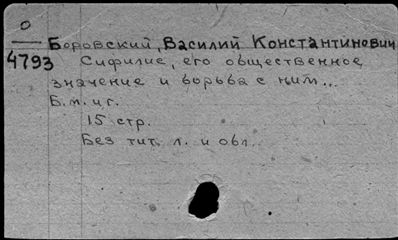 О
4793
Боровский, Василий Константинович
Сифилис, его общественное
значение и борьба с ним...
Б.м. и г.
15 стр.
Без тит. л. и обл.